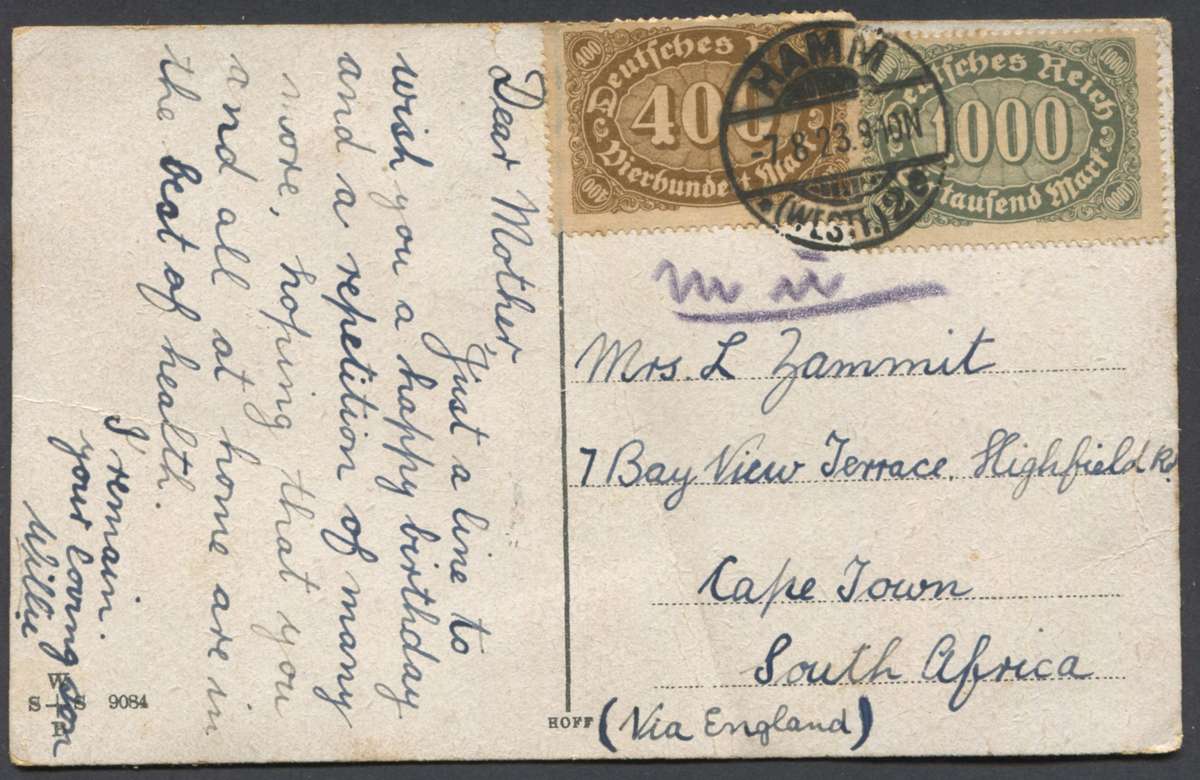 Dear Mother,
Just a line to
wish you a happy birthday
and a repetition of many
more, hoping that you
and all at home are in
the best of health.
I remain.
your loving son
Willie
400
Deutsches
400
Vierhundert Mark
400
1000
Deutsches Reich
1000
tausend Mark
1000
HAMM
-7.8.23.9-10N
(WESTF.) 2e
Mrs. L Zammit
7 Bay View Terrace, Highfield Rd
Cape Town
South Africa
(Via England)
W
S S 9084
B
HOFF